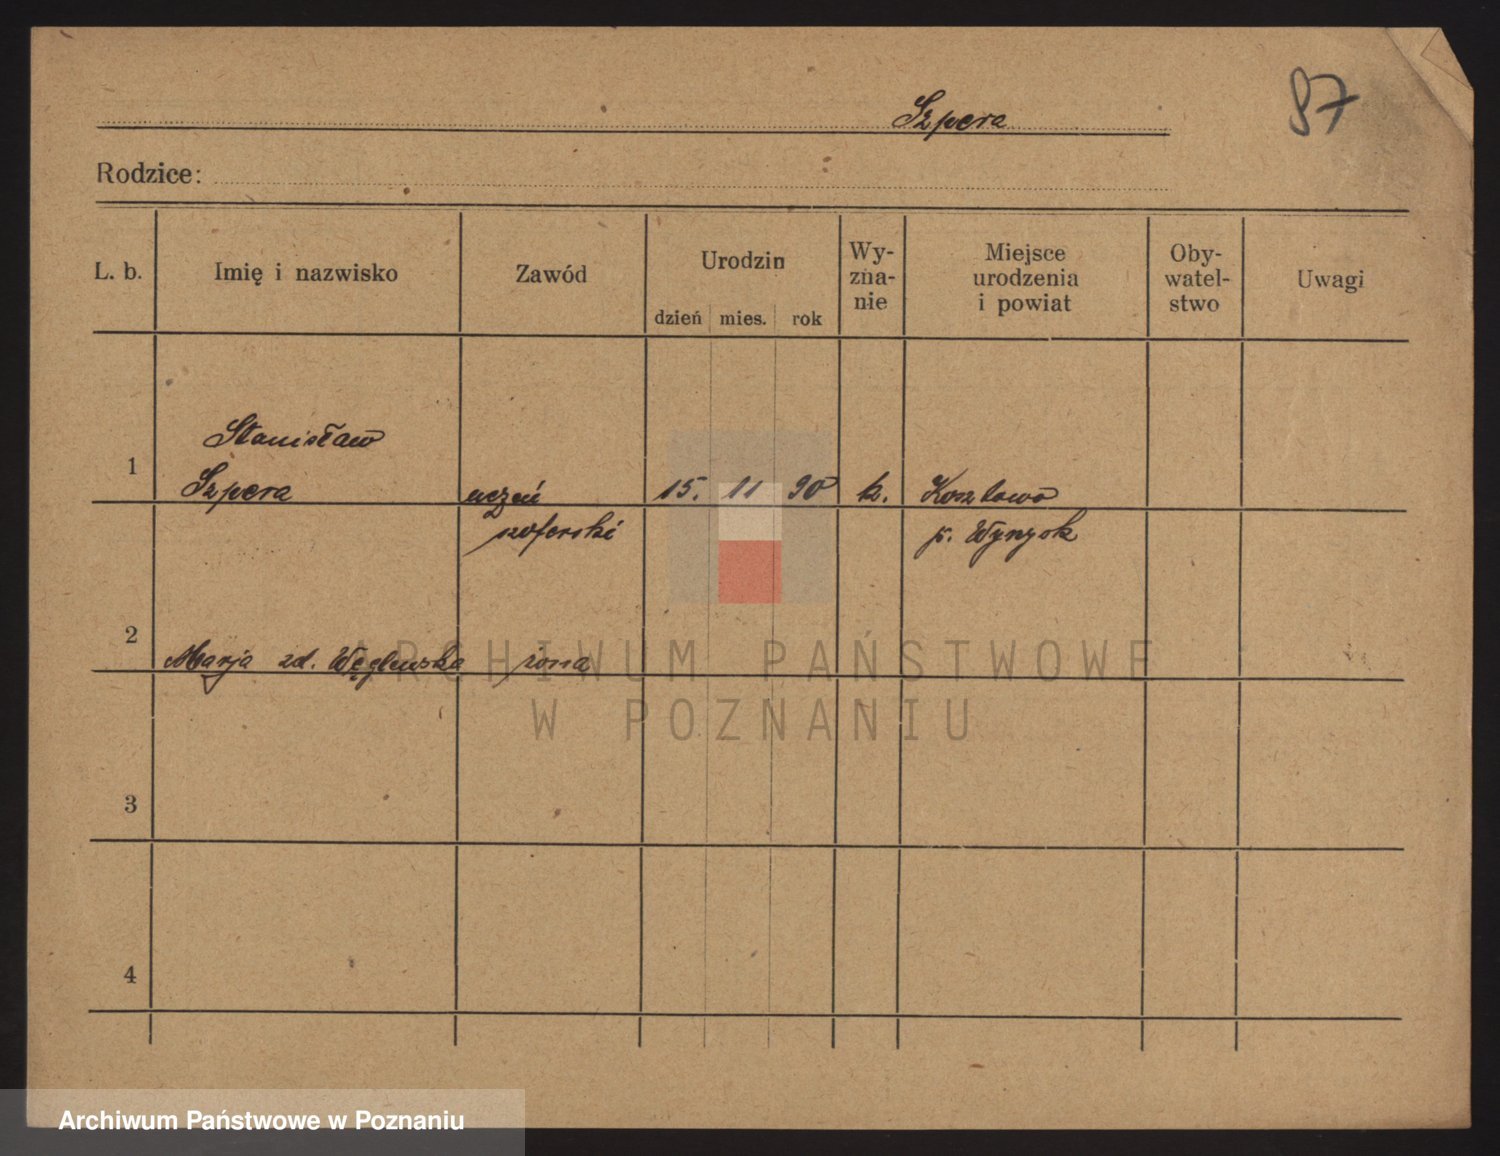 Szpera
97
Rodzice:
L. b.
Imię i nazwisko
Zawód
Urodzin
dzień mies. rok
Wy-
zna-
nie
Miejsce
urodzenia
i powiat
Oby-
watel-
stwo
Uwagi
1
Stanisław
Szpera
uczeń
szoferski
15. 11 90
k.
Kosztowo
p. Wyrzysk
2
Marja zd. Węglewska żona
3
4
ARCHIWUM PAŃSTWOWE
W POZNANIU
Archiwum Państwowe w Poznaniu